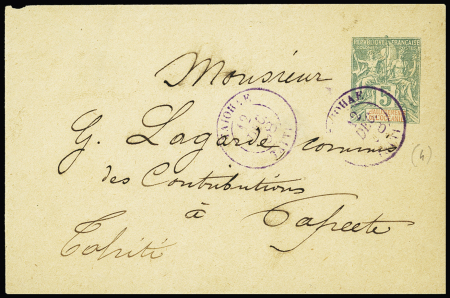 REPUBLIQUE FRANCAISE
5
Monsieur
TAIOHAE
G. Lagarde commis
des Contributions
à Papeete
Tahiti
(4)